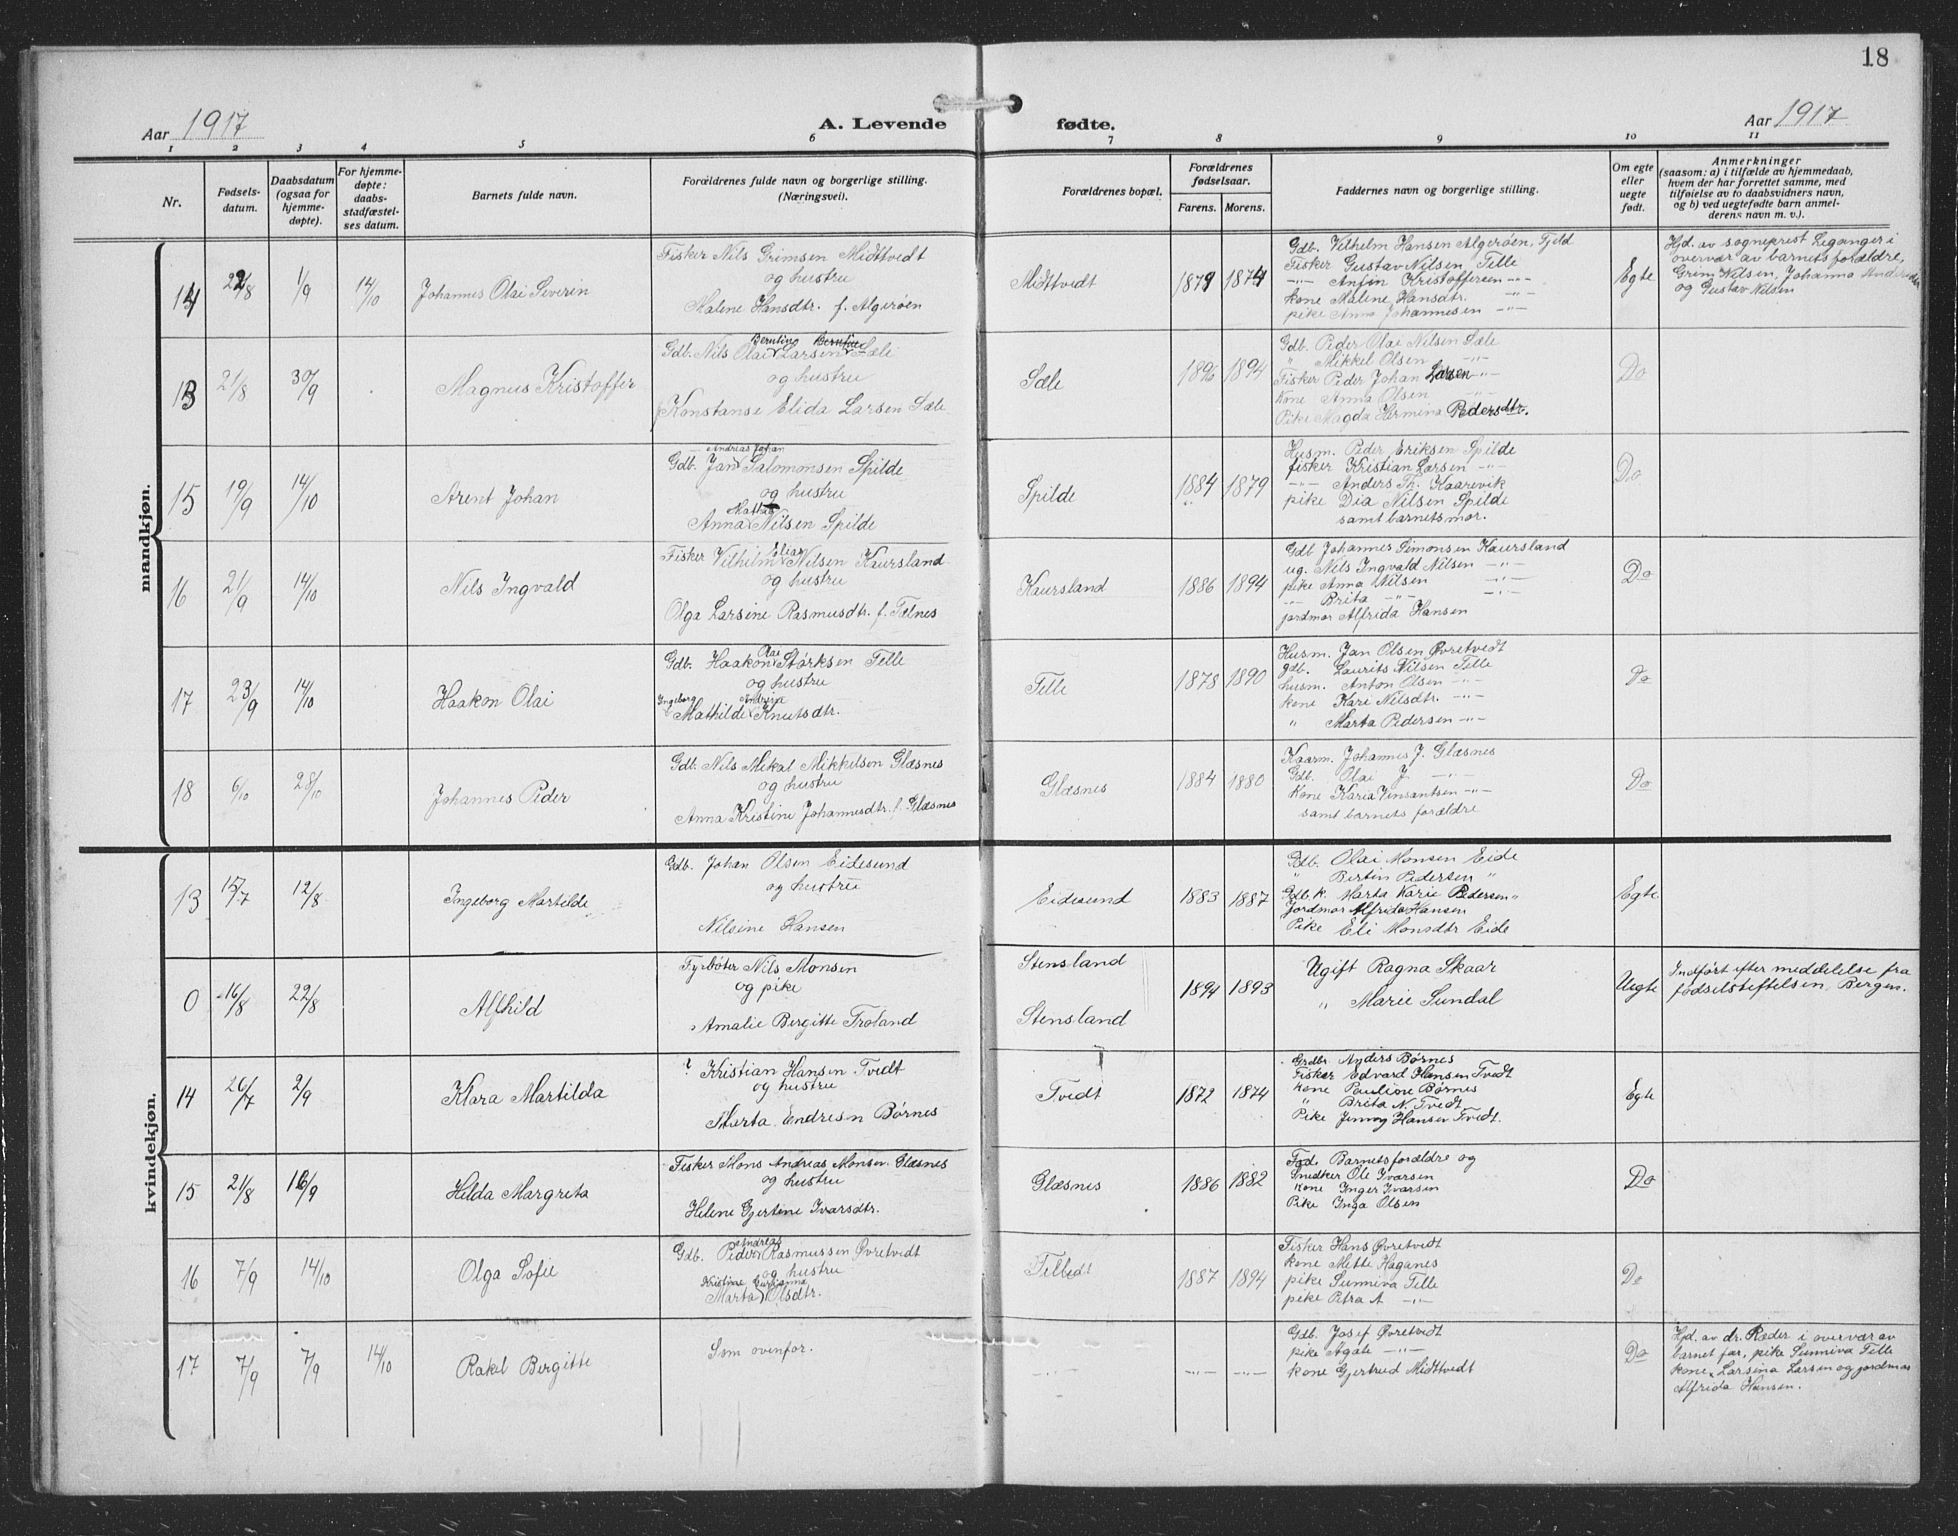 18
Aar 1917
A. Levende fødte.
Aar 1917
1 2 3 4 5 6 7 8 9 10 11
Nr.
Fødsels-
datum.
Daabsdatum
(ogsaa for
hjemme-
døpte).
For hjemme-
døpte:
daabs-
stadfæstel-
ses datum.
Barnets fulde navn.
Forældrenes fulde navn og borgerlige stilling.
(Næringsvei).
Forældrenes bopæl.
Forældrenes
fødselsaar.
Farens. Morens.
Faddernes navn og borgerlige stilling.
Om egte
eller
uegte
født.
Anmerkninger
(saasom: a) i tilfælde av hjemmedaab,
hvem der har forrettet samme, med
tilføielse av to daabsvidners navn,
og b) ved uegtefødte barn anmel-
derens navn m. v.).
mandkjøn.
14 22/8 1/9 14/10 Johannes Olai Severin
Fisker Nils Grimsen Midttvedt
og hustru
Malene Hansdtr. f. Algerøen
Midtvedt 1874
Gdb. Vilhelm Hansen Algerøen, Fjeld
Fisker Gustav Nilsen Telle
-"- Anfin Kristoffersen -"-
kone Malene Hansdtr. -"-
pike Anna Johannesen -"-
Egte
Hjd. av sogneprest Leganger i
overvær av barnets forældre,
Grim Nilsen, Johanna
og Gustav Nilsen
13 21/8 30/9 Magnus Kristoffer
Bertine
Gdb. Nils Olai Larsen Sæle
og hustru
Konstanse Elida Larsen Sæle
Sæle 1896 1894
Gdb. Peder Olai Nilsen Sæle
" Mikkel Olsen -"-
Fisker Peder Johan Larsen -"-
Kone Anna Olsen -"-
Pike Magda Hermina Pedersdtr.
Do
15 19/9 14/10 Arent Johan
Andreas Johan
Gdb. Jan Salomonsen Spilde
og hustru
Anna Nilsen Spilde
Spilde 1884 1879
Husm. Peder Eriksen Spilde
fisker Kristian Larsen -"-
-"- Anders Th. Haarevik
pike Dia Nilsen Spilde
samt barnets mor.
Do
16 21/9 14/10 Nils Ingvald
Elias
Fisker Vilhelm Nilsen Kaursland
og hustru
Olga Larsine Rasmusdtr. f. Telnes
Kaursland 1886 1894
Gdb Johannes Simonsen Kaursland
ug. Nils Ingvald Nilsen -"-
pike Anna Nilsen -"-
-"- Brita -"- -"-
jordmor Alfrida Hansen
Do
17 23/9 14/10 Haakon Olai
Olai
Gdb. Haakon Størksen Telle
og hustru
Ingeborg Andrina
Mathilde Knutsdtr.
Telle 1878 1890
Husm. Jan Olsen Øvretvedt
gdb. Laurits Nilsen Telle
husm. Anton Olsen -"-
kone Kari Nilsdtr. -"-
" Marta Pedersen -"-
Do
18 6/10 28/10 Johannes Peder
Gdb. Nils Mikal Mikkelsen Glæsnes
og hustru
Anna Kristine Johannesdtr. f. Glæsnes
Glæsnes 1884 1880
Kaarm. Johannes J. Glæsnes
Gdb. Olai J. -"-
Kone Karia Vinsantsen -"-
samt barnets forældre
Do
kvindekjøn.
13 15/7 12/8 Ingeborg Martilde
Gdb. Johan Olsen Eidesund
og hustru
Nilsine Hansen
Eidesund 1883 1887
Gdb. Olai Monsen Eide
" Bertin Pedersen "
Gdb.k. Marta Karie Pedersen "
Jordmor Alfrida Hansen
Pike Eli Monsdtr Eide
Egte
0 16/8 22/8 Alfhild
Fyrbøter Nils Monsen
og pike
Amalie Bergitte Troland
Stensland
Stensland
1894 1893
Ugift Ragna Skaar
" Marie Sundal
Uegte
Indført efter meddelelse fra
fødselstiftelsen, Bergen.
14 26/7 2/9 Klara Martilda
? Kristian Hansen Tvedt
og hustru
Marta Endresen Børnes
Tvedt 1872 1874
Grdbr. Anders Børnes
Fisker Edvard Hansen Tvedt
Kone Pauline Børnes
" Brita N. Tvedt
Pike Jenny Hansen Tvedt.
Egte
15 21/8 16/9 Hilda Margreta
Fisker Mons Andreas Monsen Glæsnes
og hustru
Helene Gjertine Ivarsdtr.
Glæsnes 1886 1882
Fad. Barnets forældre og
Snidker Ole Ivarsen
Kone Inger Ivarsen
Pike Inga Olsen
Do
16 7/9 14/10 Olga Sofie
Andreas
Gdb. Peder Rasmussen Øvretvedt
og hustru
Kristine
Marta Olsdtr.
1887 1894
Fisker Hans Øvretvedt
kone Mette Haganes
pike Sunniva Telle
pike Petra A -"-
Do
17 7/9 7/9 14/10 Rakel Bergitte
Som ovenfor.
-"- -"- -"-
Gdb. Josef Øvretvedt
pike Agate -"-
kone Gjertrud Midttvedt
Do
Hjd. av dr. Ræder i overvær av
barnet far, pike Sunniva Telle
kone Larsina Larsen og jordmor
Alfrida Hansen.